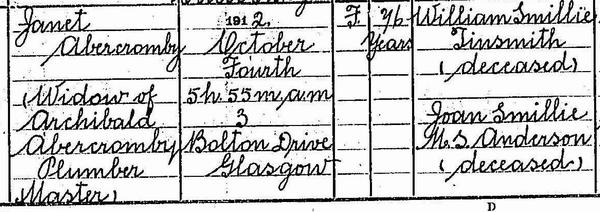 Janet
Abercromby
(Widow of
Archibald
Abercromby
Plumber
Master)
1912
October
Fourth
5h. 55m. a.m
3
Bolton Drive
Glasgow
F
76
Years
William Smillie
Tinsmith
(deceased)
Joan Smillie
M.S. Anderson
(deceased)
D